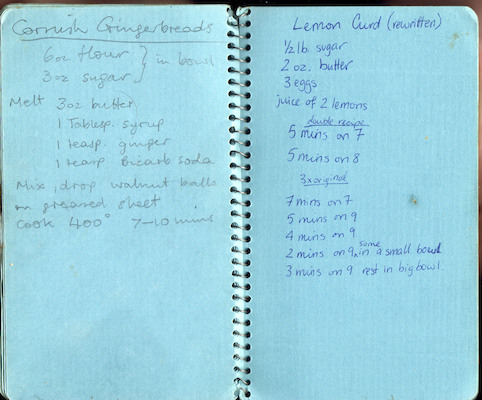 Cornish Gingerbreads
6oz flour } in bowl
3oz sugar
Melt 3oz butter
1 Tablesp. syrup
1 teasp. ginger
1 teasp Bicarb soda
Mix, drop walnut balls
on greased sheet
Cook 400° 7-10 mins
Lemon Curd (rewritten)
1/2 lb. sugar
2 oz. butter
3 eggs
juice of 2 lemons
double recipe
5 mins on 7
5 mins on 8
3 x original
7 mins on 7
5 mins on 9
4 mins on 9
2 mins on 9 x some in a small bowl
3 mins on 9 rest in big bowl